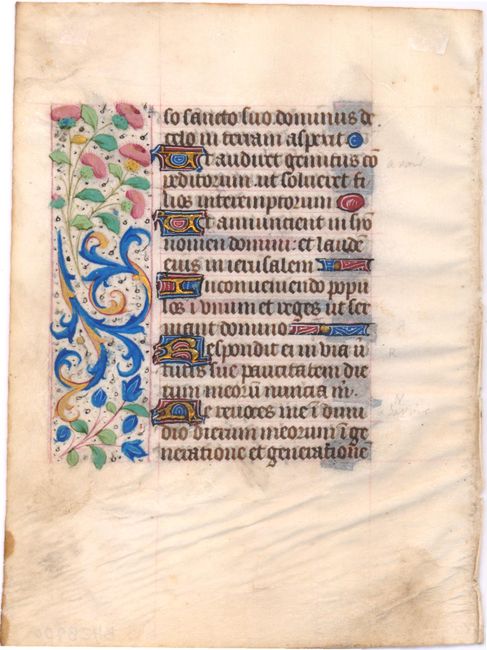 so sancto suo dominus de
celo in terram aspexit
Ut audiret gemitus cō
peditorum ut solveret fi
lios interemptorum
Ut annuncient in syō
nomen domini: et laudē
eius in ierusalem
In conveniendo popu
los ī unum et reges ut ser
viant domino
Respondit ei in via v̄
tutis sue paucitatem die
rum meorū nuncia m̄.
Ne revoces me ī dimi
dio dierum meorum ī ge
neratione et generatione